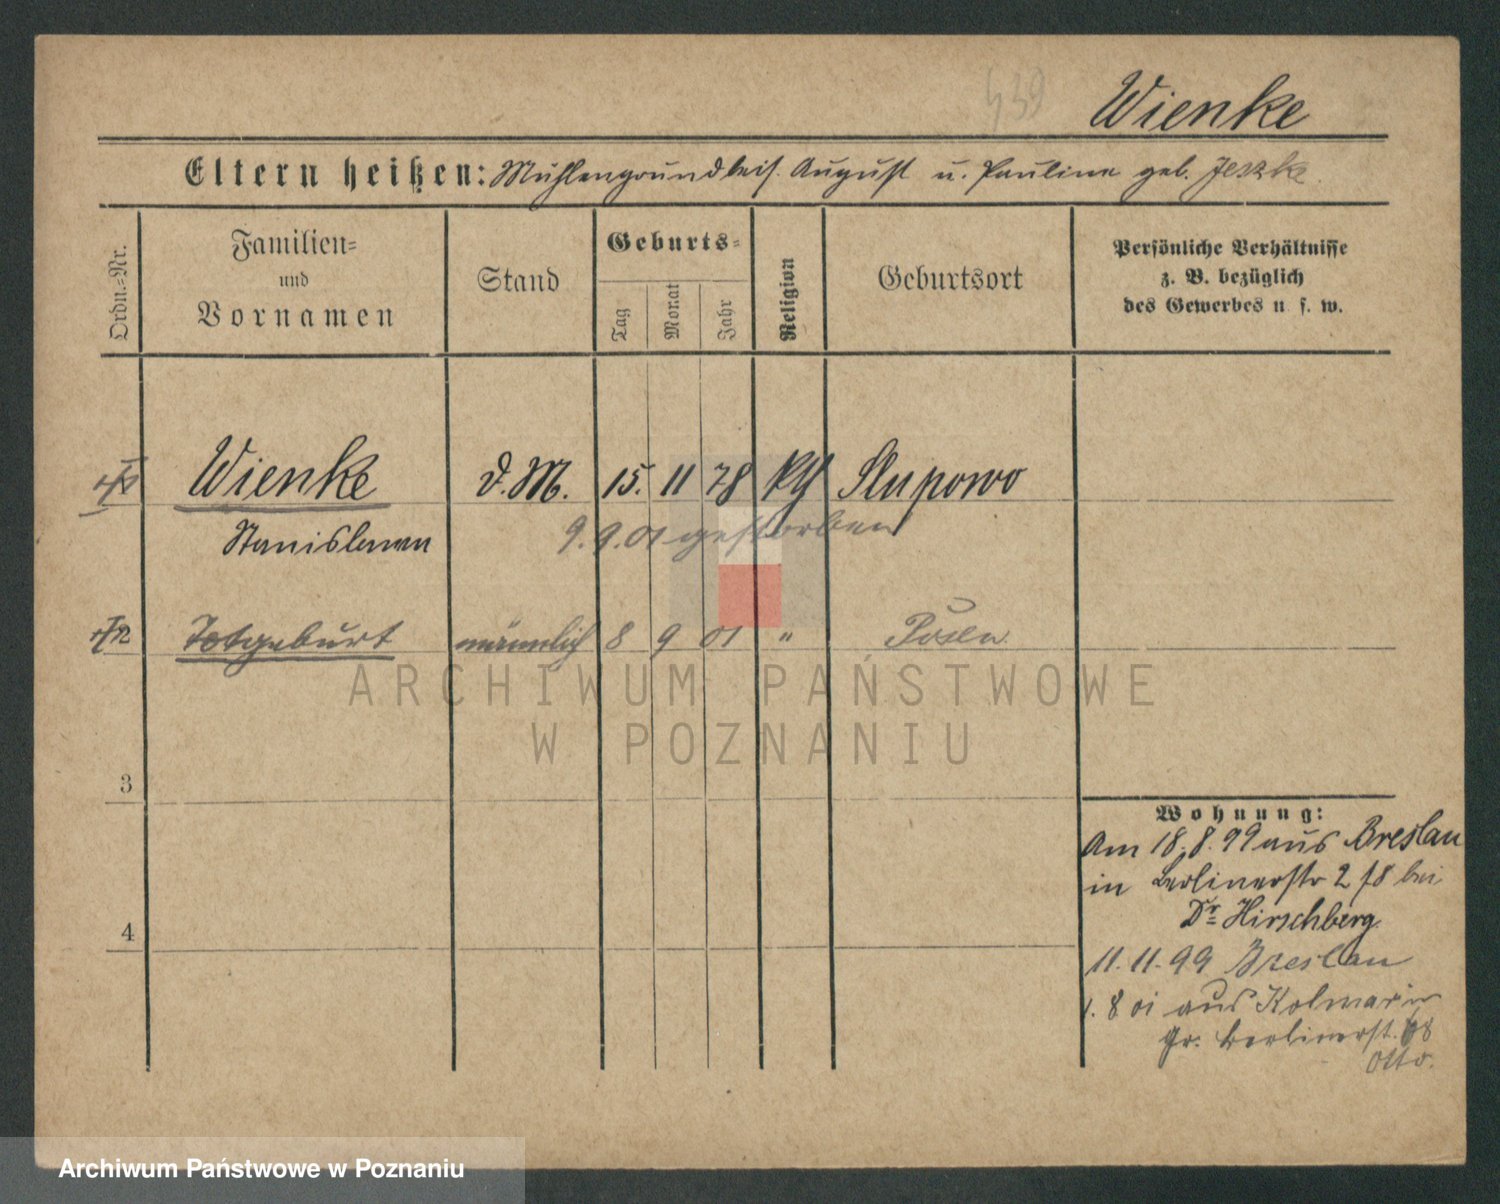 439
Wienke
Eltern heißen: Mühlengrundbes. August u. Pauline geb. Jeszke.
Ordn.-Nr.
Familien- und Vornamen
Stand
Geburts-
Tag
Monat
Jahr
Religion
Geburtsort
Persönliche Verhältnisse
z. B. bezüglich
des Gewerbes u. s. w.
Wienke d. M. 15. 11 78 kth Slupowo
Stanislawa 9.9.01 gestorben
2 Totgeburt männlich 8 9 01 " Posen
ARCHIWUM PAŃSTWOWE
W POZNANIU
3
4
Wohnung:
Am 18.8.99 aus Breslau
in Berlinerstr 2 bei
Dr Hirschberg
11.11.99 Breslau
1. 8 01 aus Kolmar in
Gr. Berlinerst. 68
Otto.
Archiwum Państwowe w Poznaniu